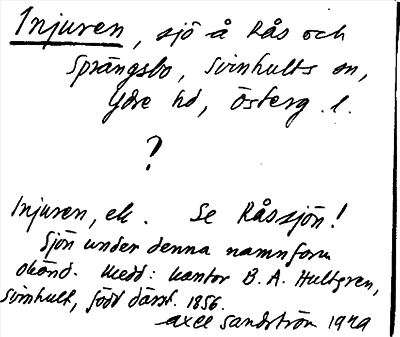 Injuren, sjö å Rås och
Sprängsbo, Svinhults sn,
Ydre hd, Österg. l.
?
Injuren, ek. Se Råssjön!
Sjön under denna namnform
okänd. Medd: kantor B. A. Hultgren,
Svinhult, född därst. 1856.
Axel Sandström 1929